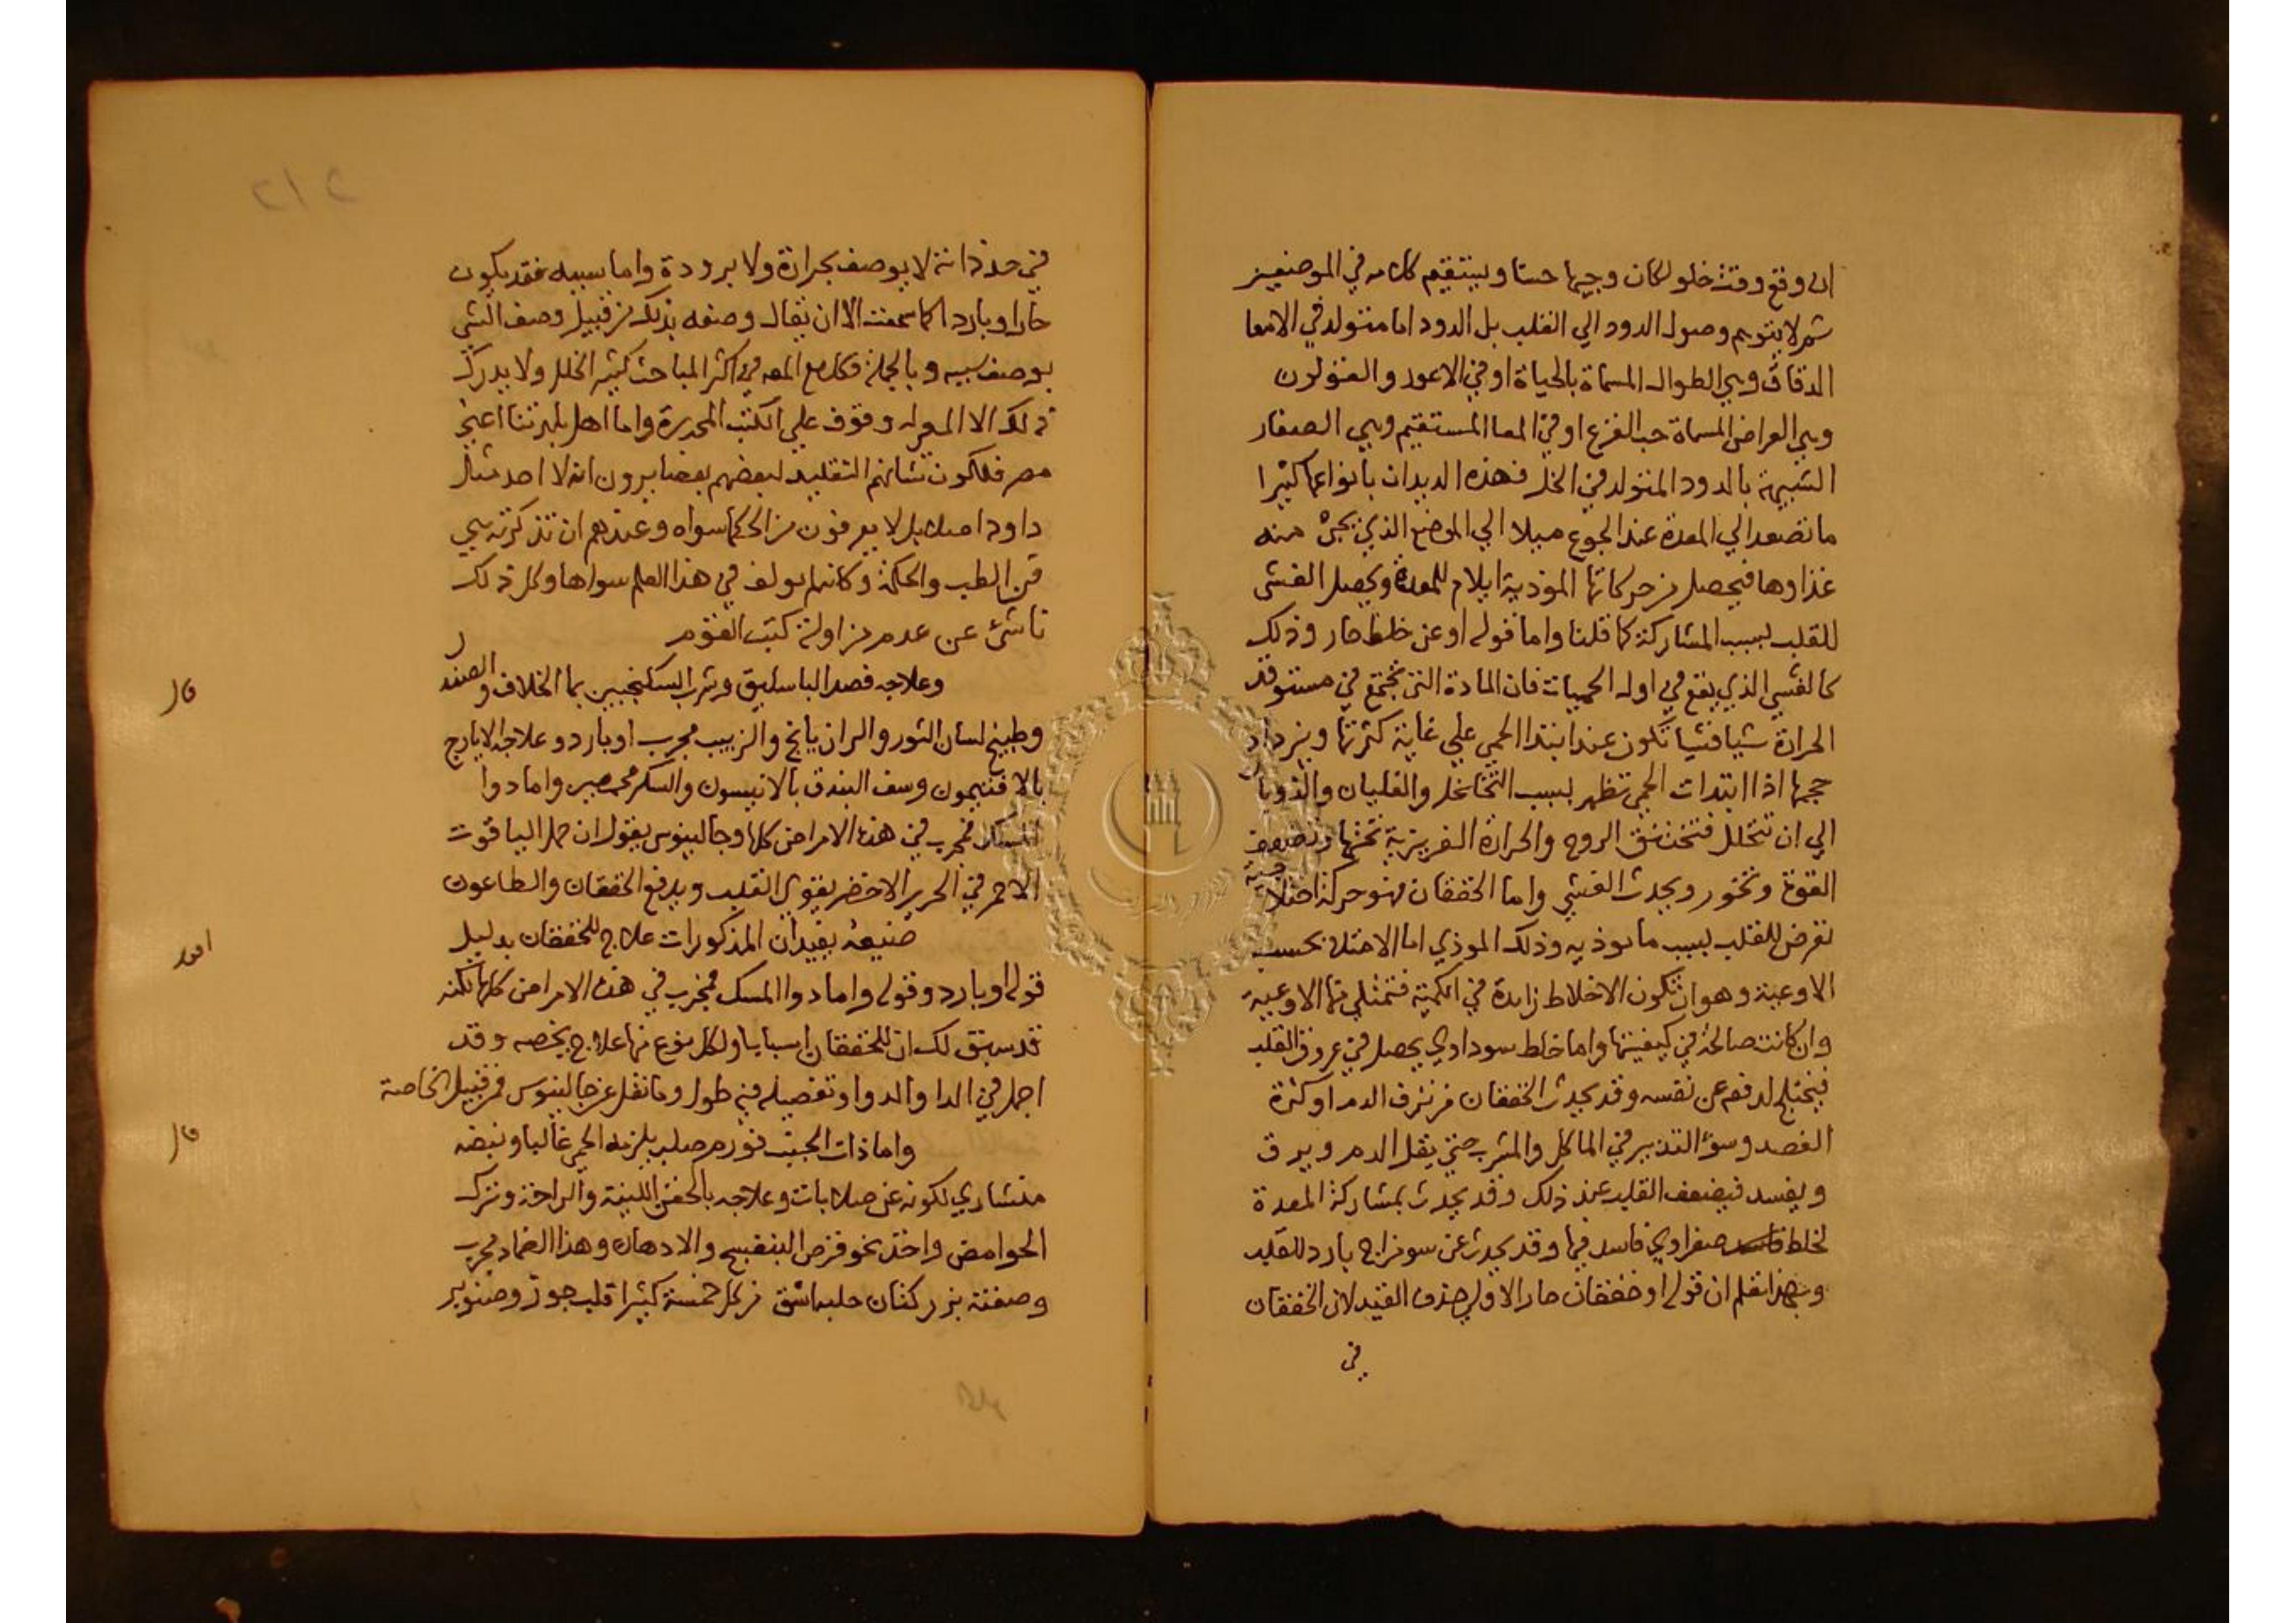 ان وقع وقت خلو لكان وجيها حسنا ويستقيم كلامه في الموضعين
ثم لا يتوهم وصول الدود الي القلب بل الدود اما متولد في الامعا
الدقاق وهي الطوال المسماة بالحياة او في الاعور والقولون
وهي العراض المسماة حب القرع او في المعا المستقيم وهي الصغار
الشبيهة بالدود المتولد في الخل فهذه الديدان بانواعها كثيرا
ما تصعد الي المعدة عند الجوع ميلا الي الموضع الذي يجئ منه
غذاوها فيحصل من حركاتها الموذية ايلام للمعدة ويحصل الغشي
للقلب بسبب المشاركة كما قلنا واما قوله او عن خلط حار وذلك
كالغشي الذي يقع في اول الحميات فان المادة التي تجتمع في مستوقد
الحرارة شيا فشيا تكون عند ابتدا الحمي علي غاية كثرتها ويزداد
حجمها اذا ابتدات الحمي تظهر بسبب التخلخل والغليان والذوبان
الي ان تتحلل فتختنق الروح والحرارة الغريزية تحتها وتضعف
القوة وتخور ويحدث الغشي واما الخفقان فهو حركة اختلاجية
تعرض للقلب بسبب ما يوذيه وذلك الموذي اما الامتلا بحسب
الاوعية وهو ان تكون الاخلاط زايدة في الكمية فتمتلي بها الاوعية
وان كانت صالحة في كيفيتها واما خلط سوداوي يحصل في عروق القلب
فيختلج لدفعه عن نفسه وقد يحدث الخفقان من نزف الدم او كثرة
الفصد وسوء التدبير في الماكل والمشرب حتي يقل الدم ويرق
ويفسد فيضعف القلب عند ذلك وقد يحدث بمشاركة المعدة
لخلط صفراوي فاسد فيها وقد يحدث عن سو مزاج بارد للقلب
وبهذا تعلم ان قوله او خفقان حار الاولي حذف القيد لان الخفقان
في
٢١٢
في حد ذاته لا يوصف بحرارة ولا برودة واما سببه فقد يكون
حارا وباردا كما سمعت الا ان يقال وصفه بذلك من قبيل وصف الشي
بوصف سببه وبالجملة فكلام المص في اكثر المباحث كثير الخلل ولا يدرك
ذلك الا المن له وقوف علي الكتب المحررة واما اهل بلدتنا اعني
مصر فلكون شانهم التقليد لبعضهم بعضا يرون انه لا احد مثل
داود اصلا بل لا يعرفون من الحكما سواه وعندهم ان تذكرته هي
فن الطب والحكمة وكانه لم يولف في هذا العلم سواها وكل ذلك
ناشئ عن عدم مزاولة كتب القوم
قال وعلاجه فصد الباسليق وشرب السكنجبين بما الخلاف والصندل
وطبيخ لسان الثور والرازيانج والزبيب مجرب او بارد وعلاجه الايارج
بالافتيمون وسف البندق بالانيسون والسكر واما دوا
المسك فمجرب في هذه الامراض كلها وجالينوس يقول ان حمل الياقوت
الاحمر في الحرير الاخضر يقوي القلب ويدفع الخفقان والطاعون
اقول صنيعه يفيد ان المذكورات علاج للخفقان بدليل
قوله او بارد وقوله واما دوا المسك فمجرب في هذه الامراض كلها لكنه
قد سبق لك ان للخفقان اسبابا ولكل نوع منها علاج يخصه وقد
اجمل في الدا والدوا وتفصيله فيه طول وما نقل عن جالينوس فمن قبيل الخاصة
قال واما ذات الجنب فورم صلب يلزمه الحمي غالبا ونبضه
منشاري لكونه عن صلابات وعلاجه بالحقن اللينة والراحة وترك
الحوامض واخذ نحو قرص البنفسج والادهان وهذا الضماد مجرب
وصفته بزر كتان حلبه اشق من كل خمسة كثيرا قلب جوز وصنوبر